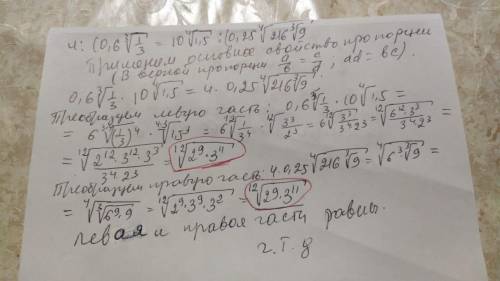 4: (0,6∛(1/3) = 10 ∜1,5 : (0,25 ∜(216 ∛9)
Применим основное свойство пропорции
(В верной пропорции a/b = c/d, ad = bc).
0,6 ∛(1/3) · 10 ∜1,5 = 4 · 0,25 ∜(216 ∛9)
Преобразуем левую часть: 0,6 ∛(1/3) · 10 ∜1,5 =
= 6 ¹²√((1/3)⁴) · ⁴·³√(1,5³) = 6 ¹²√(1/3⁴) · ¹²√(3³/2³) = 6 ¹²√(3³/(3⁴2³)) = ¹²√(6¹² · 3³/(3⁴2³)) =
= ¹²√(2¹² · 3¹² · 3³/(3⁴ · 2³)) = ¹²√(2⁹ · 3¹¹)
Преобразуем правую часть: 4 · 0,25 ∜(216 ∛9) = ∜(6³ ∛9) =
= ∜(∛(6⁹ · 9)) = ¹²√(2⁹ · 3⁹ · 3²) = ¹²√(2⁹ · 3¹¹)
левая и правая части равны.
ч.т.д